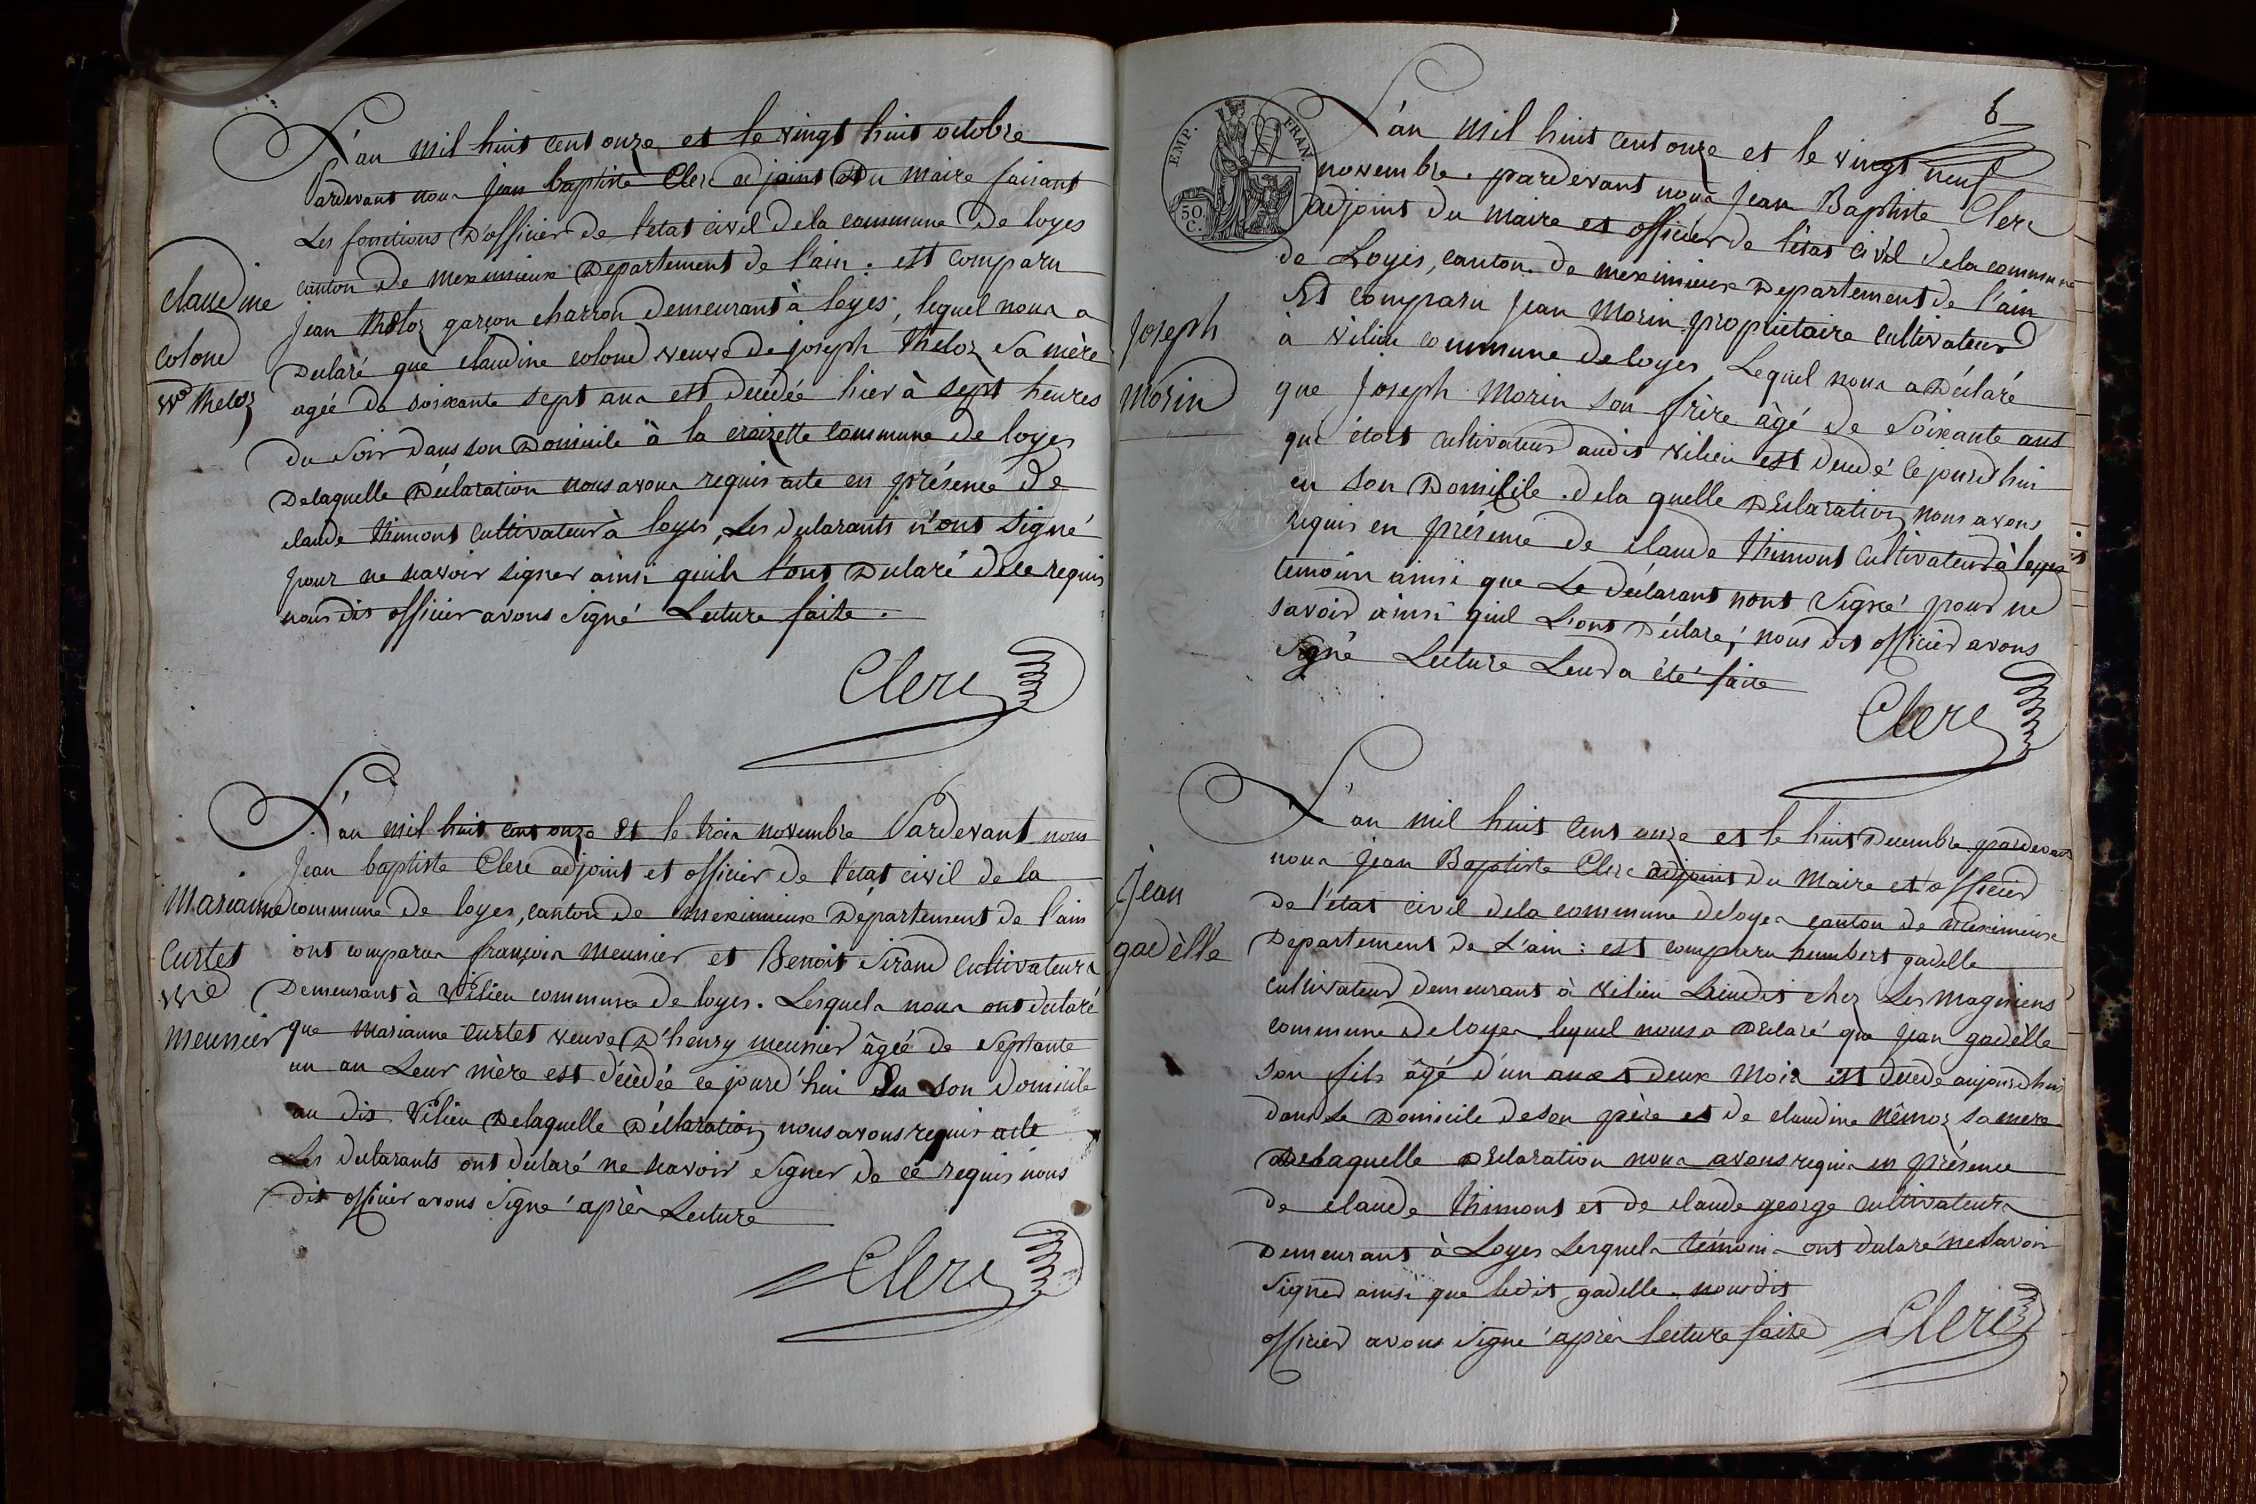 L'an mil huit cent onze et le vingt huit octobre
Pardevant nous Jean baptiste Clerc adjoint Du maire faisant
Les fonctions D'officier de l'état civil dela commune De loyes
canton De meximieux Département de l'ain : est comparu
Jean theloz garçon charron demeurant à loyes, lequel nous a
Declaré que claudine colond veuve de joseph theloz sa mère
agée de soixante sept ans est decédée hier à sept heures
du soir dans son Domicile à la croizette commune de loyes
Delaquelle Déclaration nous avons requis acte en présence de
claude thimont cultivateur à loyes, Les declarants n'ont signé
pour ne scavoir signer ainsi quils l'ont Declaré dece requis
nous dit officier avons signé Lecture faite.
Clerc
claudine
colond
vve theloz
L'an mil huit cent onze et le trois novembre Pardevant nous
Jean baptiste Clerc adjoint et officier de l'état civil de la
commune de loyes, canton de meximieux Département de l'ain
ont comparus françois meunier et Benoit Sirand cultivateurs
Demeurant à vilieu commune de loyes. Lesquels nous ont declaré
que marianne curtet veuve D'henry meunier âgée de septante
un an Leur mère est décèdée ce jourd'hui en son domicile
au dit vilieu Delaquelle Déclaration nous avons requis acte
Les declarants ont declaré ne scavoir signer de ce requis nous
dit officier avons signé après Lecture
Clerc
Marianne
curtet
vve
meunier
6
EMP. FRAN.
50
C.
L'an mil huit cent onze et le vingt neuf
novembre. pardevant nous Jean Baptiste Clerc
adjoint du maire et officier de l'état civil dela commune
de Loyes, canton de meximieux Département de l'ain
Est comparu Jean Morin propriétaire cultivateur
à vilieu commune de loyes, Lequel nous a Déclaré
que Joseph Morin son frère âgé de soixante ans
qui étoit cultivateur audit vilieu est decedé ce jourd'hui
en son Domicile. de la quelle Déclaration nous avons
requis en présence de claude thimont cultivateur à loyes
temoin ainsi que Le déclarant n'ont signé pour ne
savoir ainsi quil L'ont Déclaré, nous dit officier avons
signé Lecture Leur a été faite
Clerc
joseph
morin
L'an mil huit cent onze et le huit Decembre pardevant
nous Jean Baptiste Clerc adjoint du Maire et officier
de l'état civil dela commune de loyes canton de meximieux
Departement de L'ain : est comparu humbert gadelle
cultivateur demeurant à vilieu Lieudit chez Les maginiens
commune de loyes lequel nous a Déclaré que Jean gadèlle
son fils âgé d'un an et deux mois est decedé aujourd'hui
dans Le Domicile de son père et de claudine nêmoz sa mere
Delaquelle Déclaration nous avons requis en présence
de claude thimont et de claude george cultivateurs
Demeurant à Loyes Lesquels témoins ont declaré ne savoir
signer ainsi que ledit gadelle. nous dit
officier avons signé après lecture faite
Clerc
jean
gadèlle